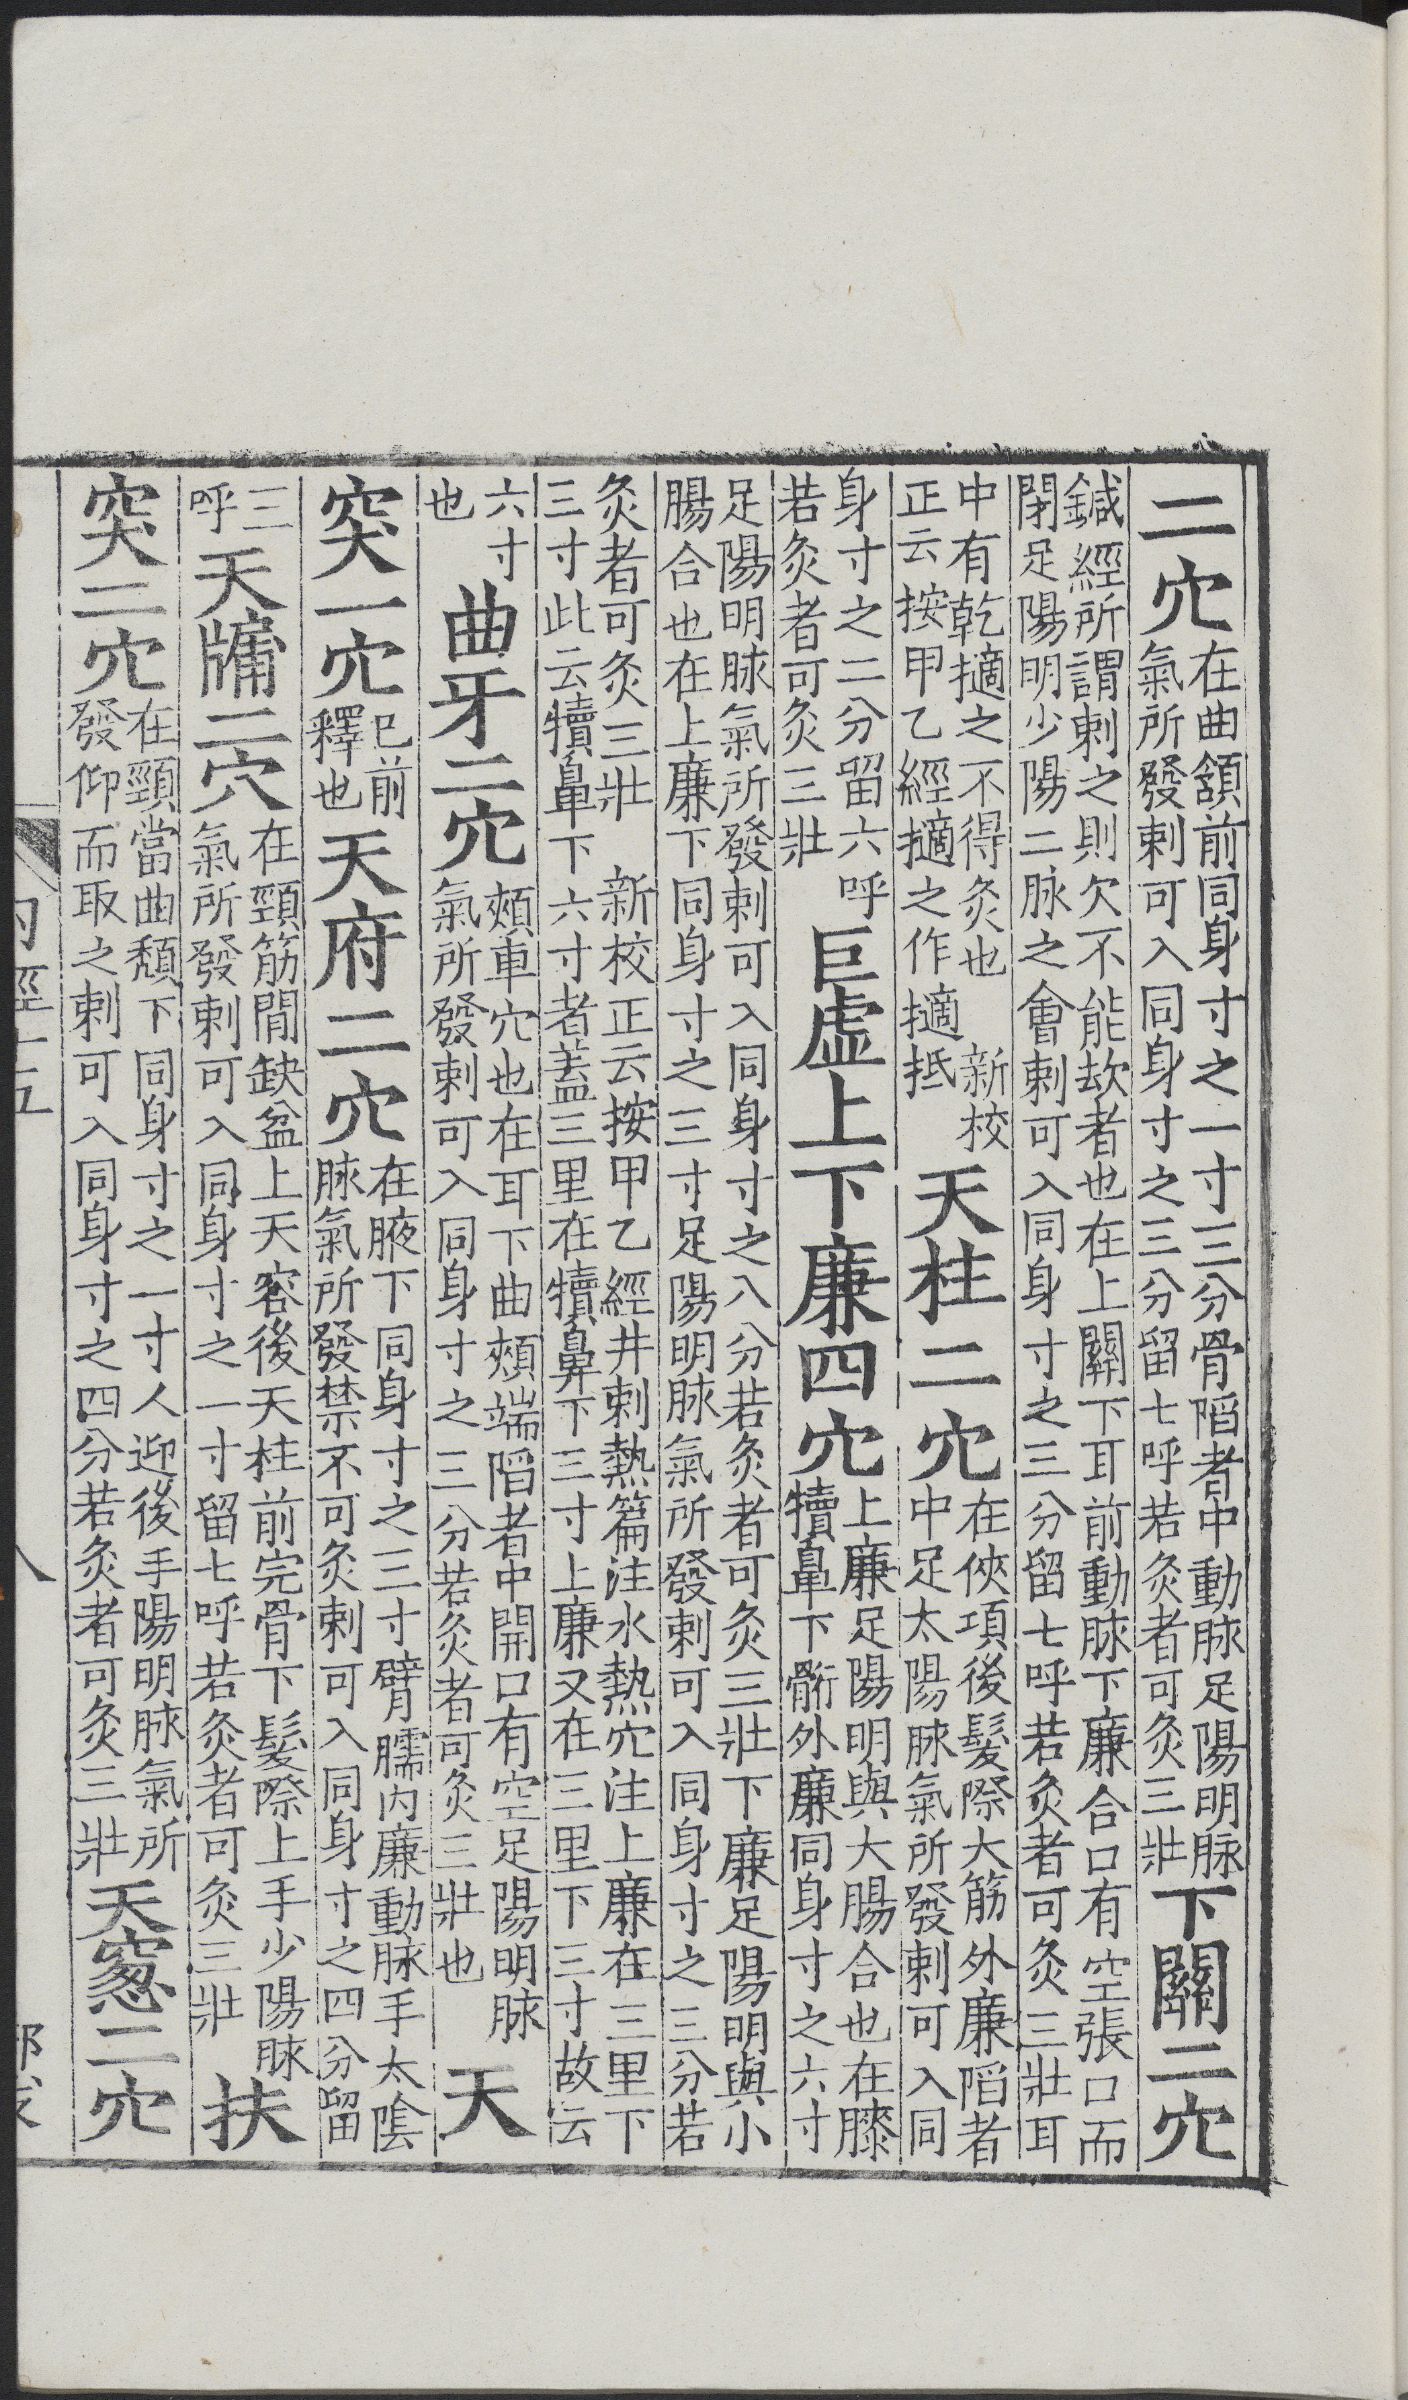 二穴在曲頷前同身寸之一寸三分骨陷者中動脉足陽明脉氣所發刺可入同身寸之三分留七呼若灸者可灸三壯下關二穴
鍼經所謂刺之則欠不能㰦者也在上關下耳前動脉下廉合口有空張口而閉足陽明少陽二脉之會刺可入同身寸之三分留七呼若灸者可灸三壯耳
中有乾擿之不得灸也 新校正云按甲乙經擿之作擿抵天柱二穴在俠項後髮際大筋外廉陷者中足太陽脉氣所發刺可入同
身寸之二分留六呼若灸者可灸三壯巨虛上下廉四穴上廉足陽明與大腸合也在膝犢鼻下䯒外廉同身寸之六寸
足陽明脉氣所發刺可入同身寸之八分若灸者可灸三壯下廉足陽明與小腸合也在上廉下同身寸之三寸足陽明脉氣所發刺可入同身寸之三分若
灸者可灸三壯 新校正云按甲乙經井刺熱篇注水熱穴注上廉在三里下三寸此云犢鼻下六寸者蓋三里在犢鼻下三寸上廉又在三里下三寸故云
六寸也曲牙二穴頰車穴也在耳下曲頰端陷者中開口有空足陽明脉氣所發刺可入同身寸之三分若灸者可灸三壯也天
突一穴已前釋也天府二穴在腋下同身寸之三寸臂臑内廉動脉手太陰脉氣所發禁不可灸刺可入同身寸之四分留
三呼天牖二穴在頸筋間缺盆上天容後天柱前完骨下髮際上手少陽脉氣所發刺可入同身寸之一寸留七呼若灸者可灸三壯扶
突二穴在頸當曲頰下同身寸之一寸人迎後手陽明脉氣所發仰而取之刺可入同身寸之四分若灸者可灸三壯天窓二穴